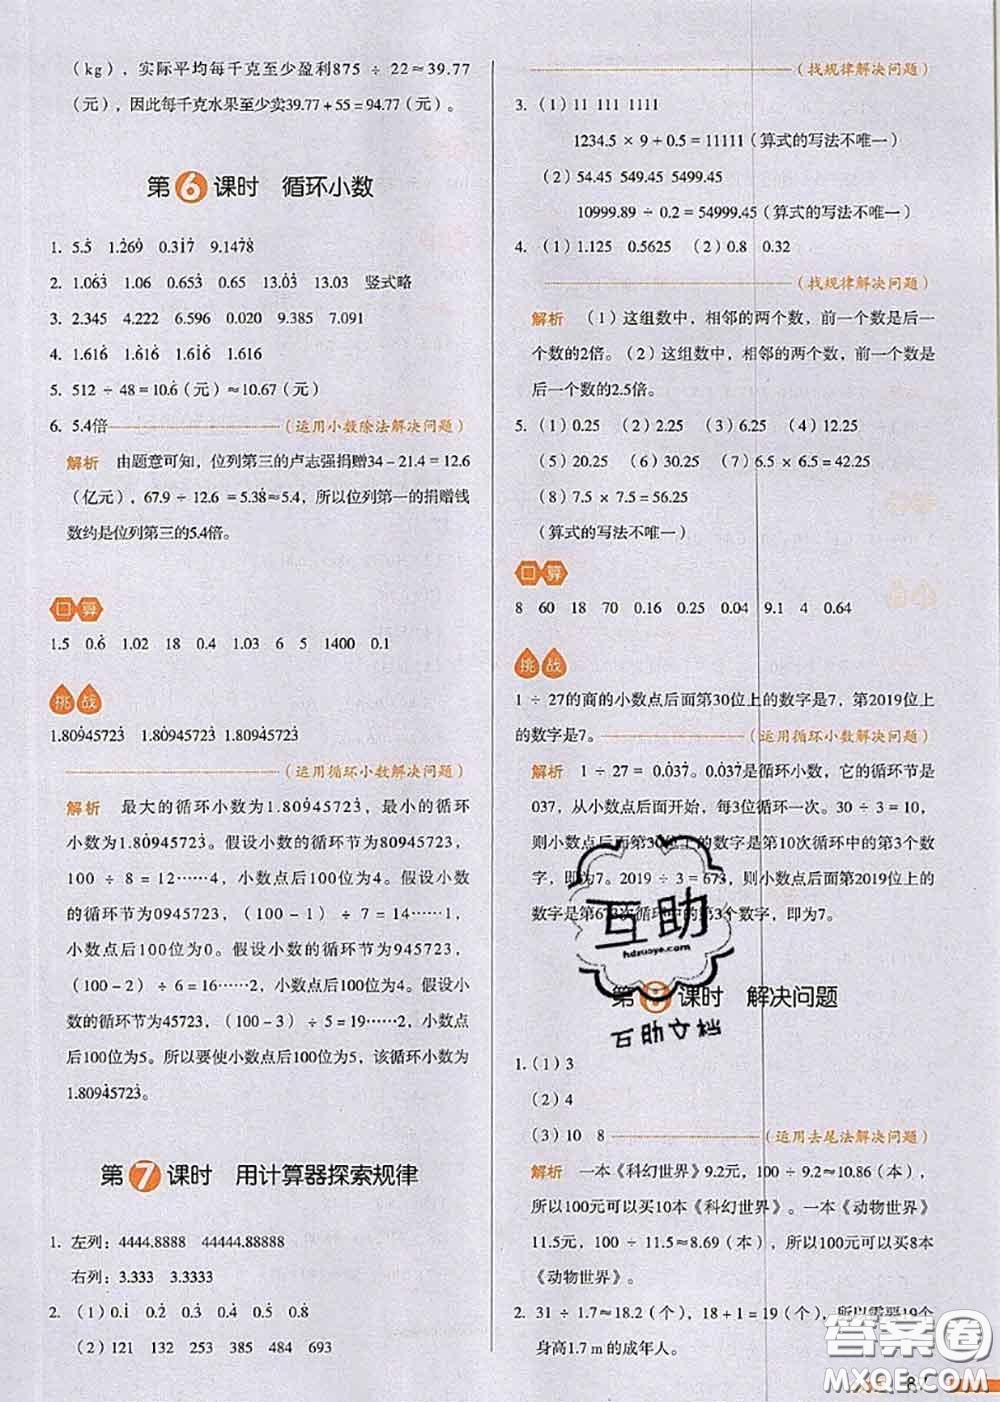 （kg），实际平均每千克至少盈利875 ÷ 22≈39.77
（元），因此每千克水果至少卖39.77 + 55 = 94.77（元）。
第6课时 循环小数
1. 5.5̇ 1.2̇69̇ 0.31̇7̇ 9.147̇8̇
2. 1.06̇3̇ 1.06 0.653̇ 0.65 13.0̇3̇ 13.03 竖式略
3. 2.345 4.222 6.596 0.020 9.385 7.091
4. 1.616̇ 1.61̇6̇ 1.6̇16̇ 1.616
5. 512 ÷ 48 = 10.6̇（元）≈10.67（元）
6. 5.4倍（运用小数除法解决问题）
解析 由题意可知，位列第三的卢志强捐赠34 – 21.4 = 12.6
（亿元），67.9 ÷ 12.6 = 5.38̇≈5.4，所以位列第一的捐赠钱
数约是位列第三的5.4倍。
口算
1.5 0.6̇ 1.02 18 0.4 1.03 6 5 1400 0.1
挑战
1.80945723̇ 1.8̇0945723̇ 1.8094̇5723̇
（运用循环小数解决问题）
解析 最大的循环小数为1.809̇45723̇，最小的循环
小数为1.8̇0945723̇。假设小数的循环节为80945723，
100 ÷ 8 = 12……4，小数点后100位为4。假设小数
的循环节为0945723，（100 – 1）÷ 7 = 14……1，
小数点后100位为0。假设小数的循环节为945723，
（100 – 2）÷ 6 = 16……2，小数点后100位为4。假设小
数的循环节为45723，（100 – 3）÷ 5 = 19……2，小数点
后100位为5。所以要使小数点后100位为5，该循环小数为
1.8094̇5723̇。
第7课时 用计算器探索规律
1. 左列：4444.8888 44444.88888
右列：3.333 3.3333
2. （1）0.1̇ 0.2̇ 0.3̇ 0.4̇ 0.5̇ 0.8̇
（2）121 132 253 385 484 693
（找规律解决问题）
3. （1）11 111 1111
1234.5 × 9 + 0.5 = 11111（算式的写法不唯一）
（2）54.45 549.45 5499.45
10999.89 ÷ 0.2 = 54999.45（算式的写法不唯一）
4. （1）1.125 0.5625 （2）0.8 0.32
（找规律解决问题）
解析 （1）这组数中，相邻的两个数，前一个数是后一
个数的2倍。（2）这组数中，相邻的两个数，前一个数是
后一个数的2.5倍。
5. （1）0.25 （2）2.25 （3）6.25 （4）12.25
（5）20.25 （6）30.25 （7）6.5 × 6.5 = 42.25
（8）7.5 × 7.5 = 56.25
（算式的写法不唯一）
口算
8 60 18 70 0.16 0.25 0.04 9.1 4 0.64
挑战
1 ÷ 27的商的小数点后面第30位上的数字是7，第2019位上
的数字是7。（运用循环小数解决问题）
解析 1 ÷ 27 = 0.0̇37̇。0.0̇37̇是循环小数，它的循环节是
037，从小数点后面开始，每3位循环一次。30 ÷ 3 = 10，
则小数点后面第30位上的数字是第10次循环中的第3个数
字，即为7。2019 ÷ 3 = 673，则小数点后面第2019位上的
数字是第673次循环中的第3个数字，即为7。
互助
hdzuoye.com
互助文档
第8课时 解决问题
1.（1）3
（2）4
（3）10 8（运用去尾法解决问题）
解析 一本《科幻世界》9.2元，100 ÷ 9.2≈10.86（本），
所以100元可以买10本《科幻世界》。一本《动物世界》
11.5元，100 ÷ 11.5≈8.69（本），所以100元可以买8本
《动物世界》。
2. 31 ÷ 1.7≈18.2（个），18 + 1 = 19（个），所以需要19个
身高1.7 m 的成年人。
答案圈
MXQE.COM